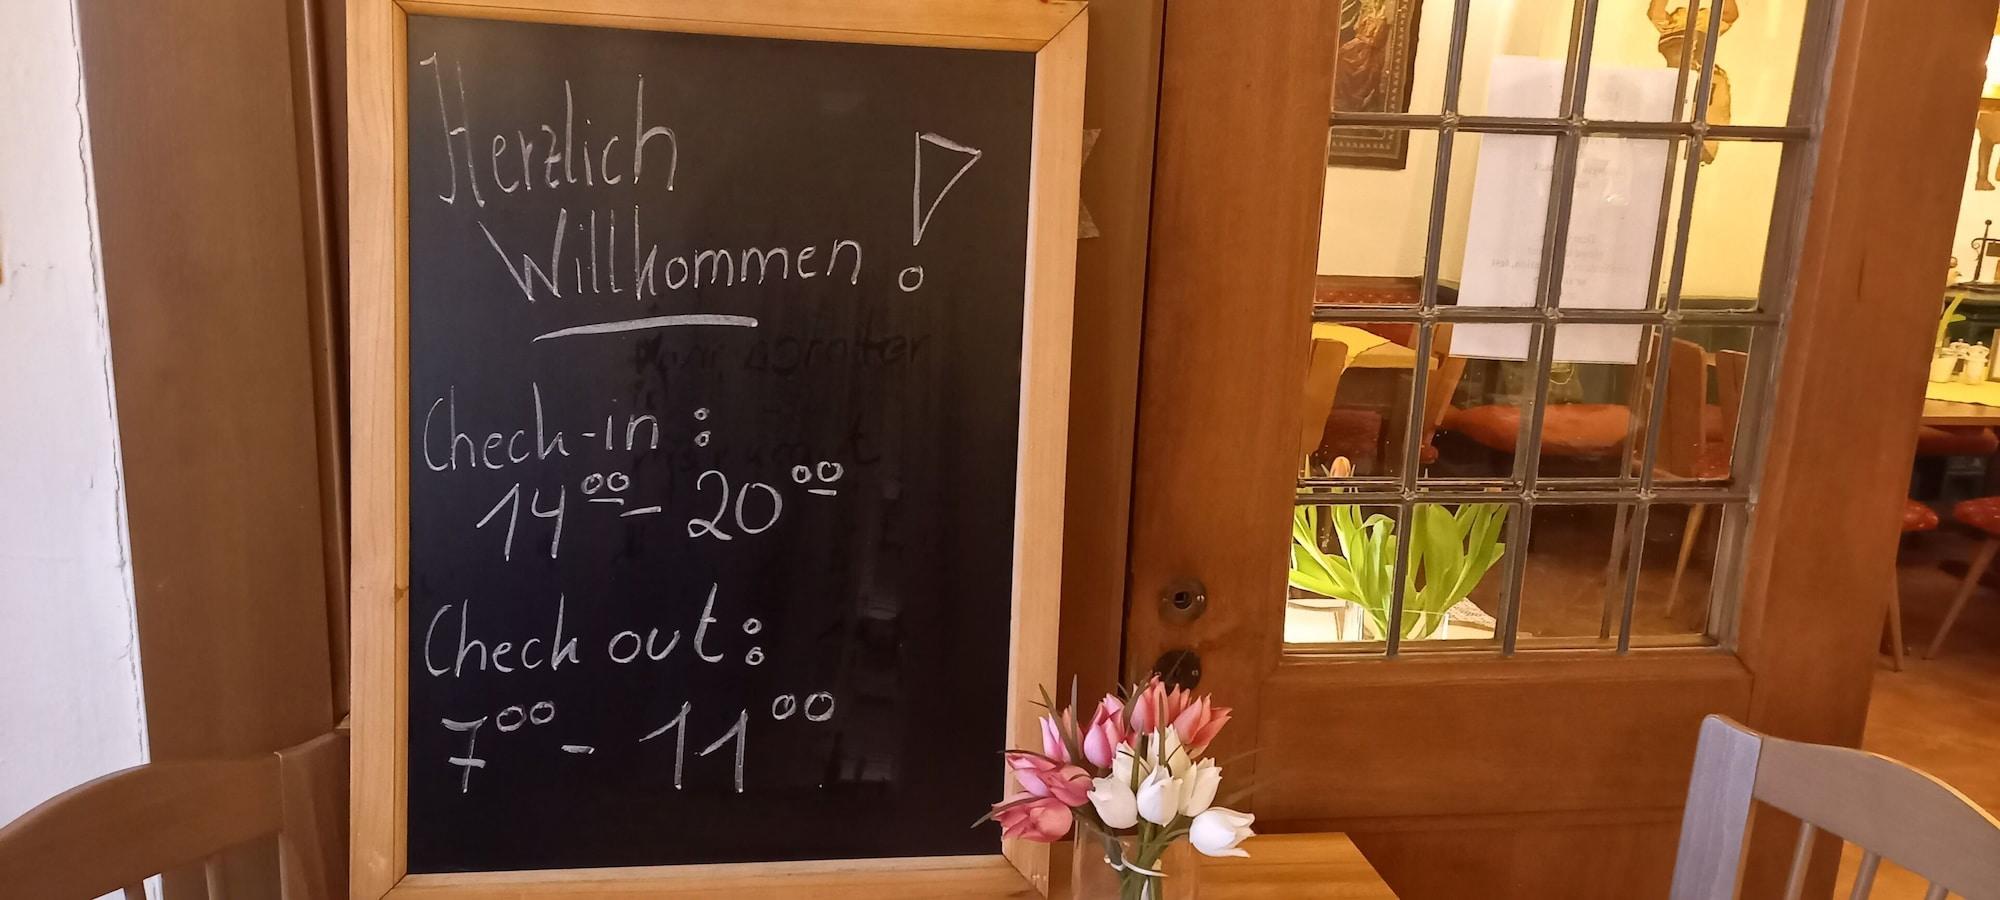 Herzlich
Willkommen !
Check-in :
14⁰⁰ - 20⁰⁰
Check out :
7⁰⁰ - 11⁰⁰